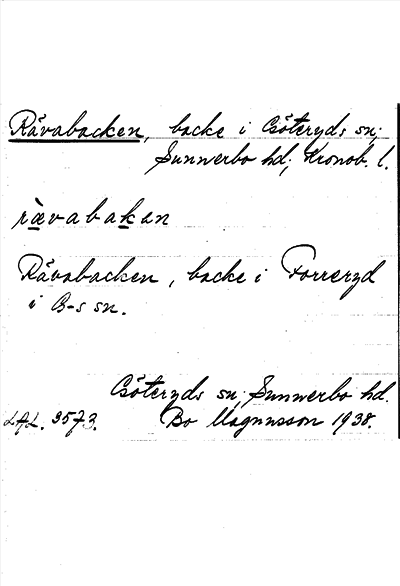 Rävabacken, backe i Böteryds sn;
Sunnerbo hd; Kronob. l.
rævabakan
Rävabacken, backe i Forreryd
i B-s sn.
Böteryds sn; Sunnerbo hd.
LAL. 3573. Bo Magnusson 1938.